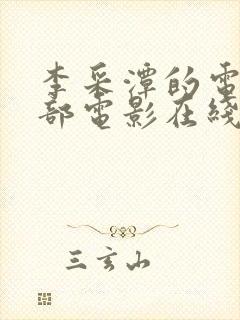 李采潭的電
部電影在綫
三玄山